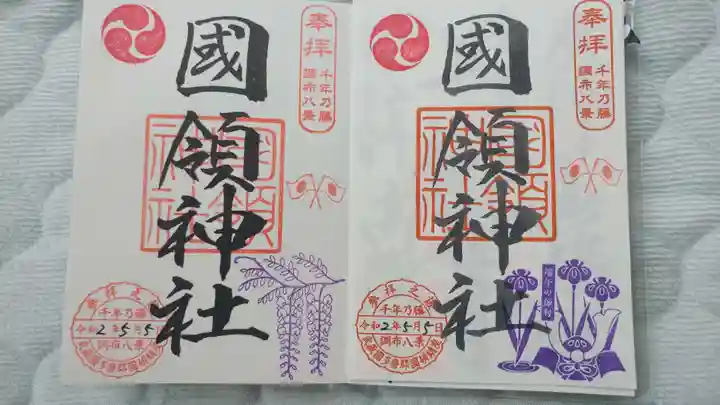 奉拝
千年乃藤
調布八景
國領神社
參拝之証
千年乃藤
令和2年5月5日
調布八景
奉拝
千年乃藤
調布八景
國領神社
端午の節句
參拝之証
千年乃藤
令和2年5月5日
調布八景